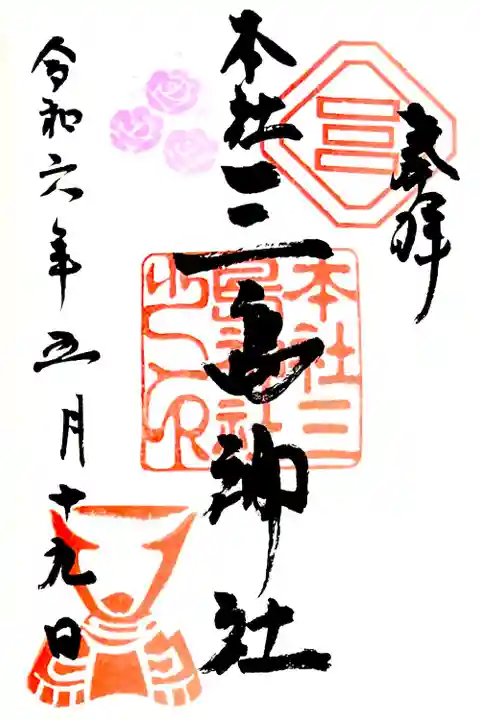 奉拝
本社三島神社
本社三島神社之印
令和六年五月十九日